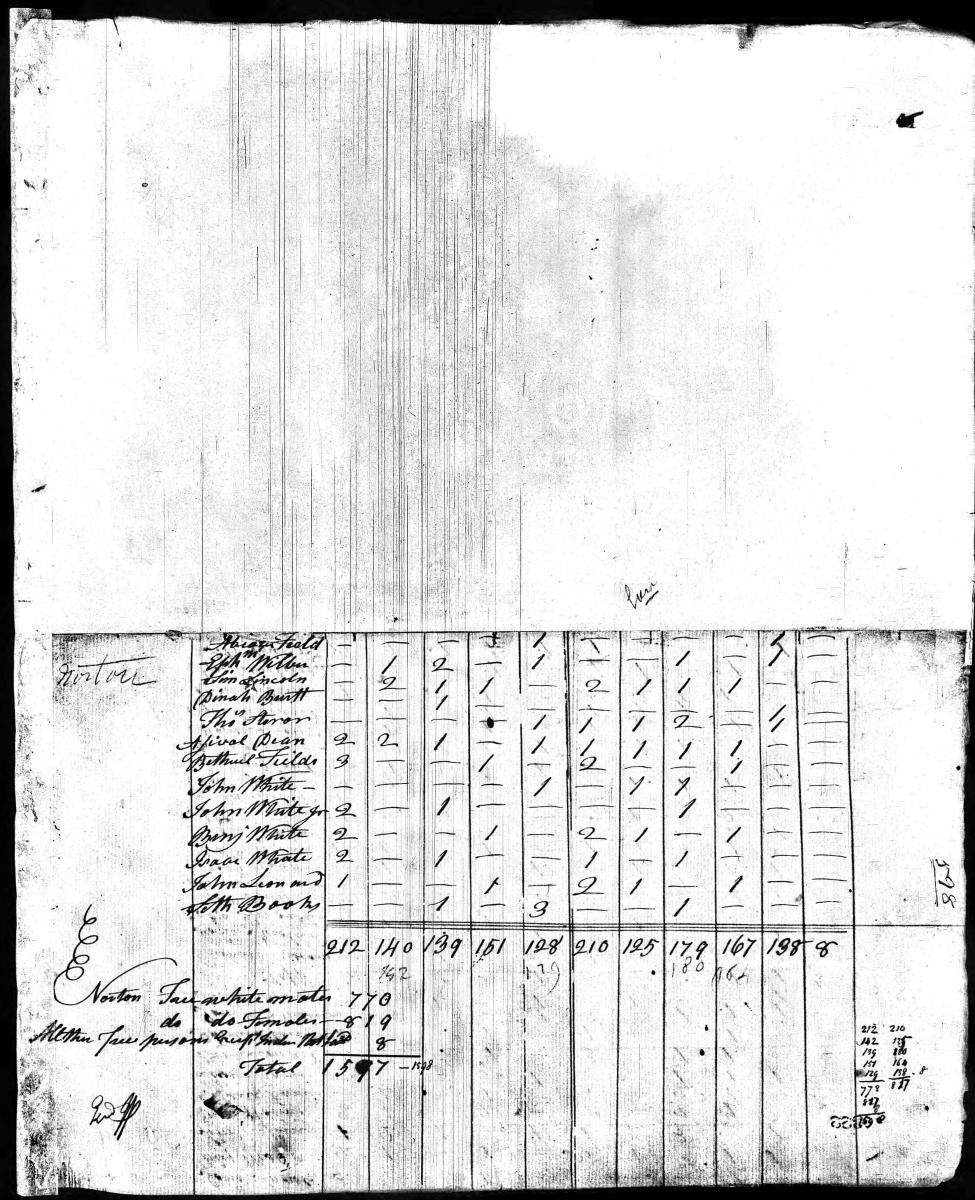 Norton
Field — — — — 1 1 — — — 1 —
Ephm Wilber — 1 2 — 1 — — 1 — 1 —
Lincoln — 2 1 1 — 2 1 1 1 — —
Dinah Burtt — — 1 — — — — — — — —
Thos — — — — 1 1 1 2 — 1 —
Dean 2 2 1 — 1 1 1 1 1 — —
Bethuel Fields 3 — — 1 — 2 — — 1 — —
John White — — — — — 1 — 1 1 — — —
John White Jr 2 — 1 — — — — 1 — — —
Benj White 2 — — 1 — 2 1 — 1 — —
Isaac White 2 — 1 — — 1 — 1 — — —
John Leonard 1 — — 1 — 2 1 — 1 — —
Seth — — 1 — 3 — — 1 — — —
598
212 140 139 151 128 210 125 179 167 138 8
142 129 180 164
Norton Free white males 770
do do Females — 819
All other free persons 8
Total 1597 — 1598
212 210
142 125
139 180
151 164
129 138 - 8
773 817